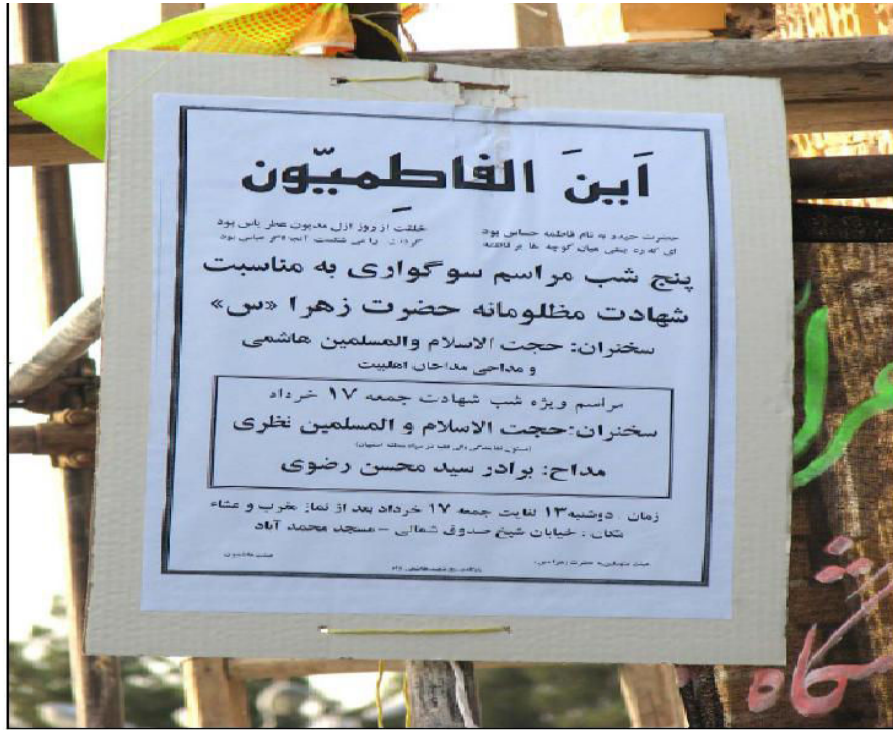 اَینَ الفاطِمیّون
حضرت حیدر به نام فاطمه حساس بود
خلقت از روز ازل مدیون عطر یاس بود
ای که ره بستی میان کوچه ها بر فاطمه
گردنت را می شکست آنجا اگر عباس بود
پنج شب مراسم سوگواری به مناسبت
شهادت مظلومانه حضرت زهرا «س»
سخنران: حجت الاسلام والمسلمین هاشمی
و مداحی مداحان اهلبیت
مراسم ویژه شب شهادت جمعه ۱۷ خرداد
سخنران:حجت الاسلام و المسلمین نظری
مداح: برادر سید محسن رضوی
زمان : دوشنبه ۱۳ لغایت جمعه ۱۷ خرداد بعد از نماز مغرب و عشاء
مکان : خیابان شیخ صدوق شمالی – مسجد محمد آباد